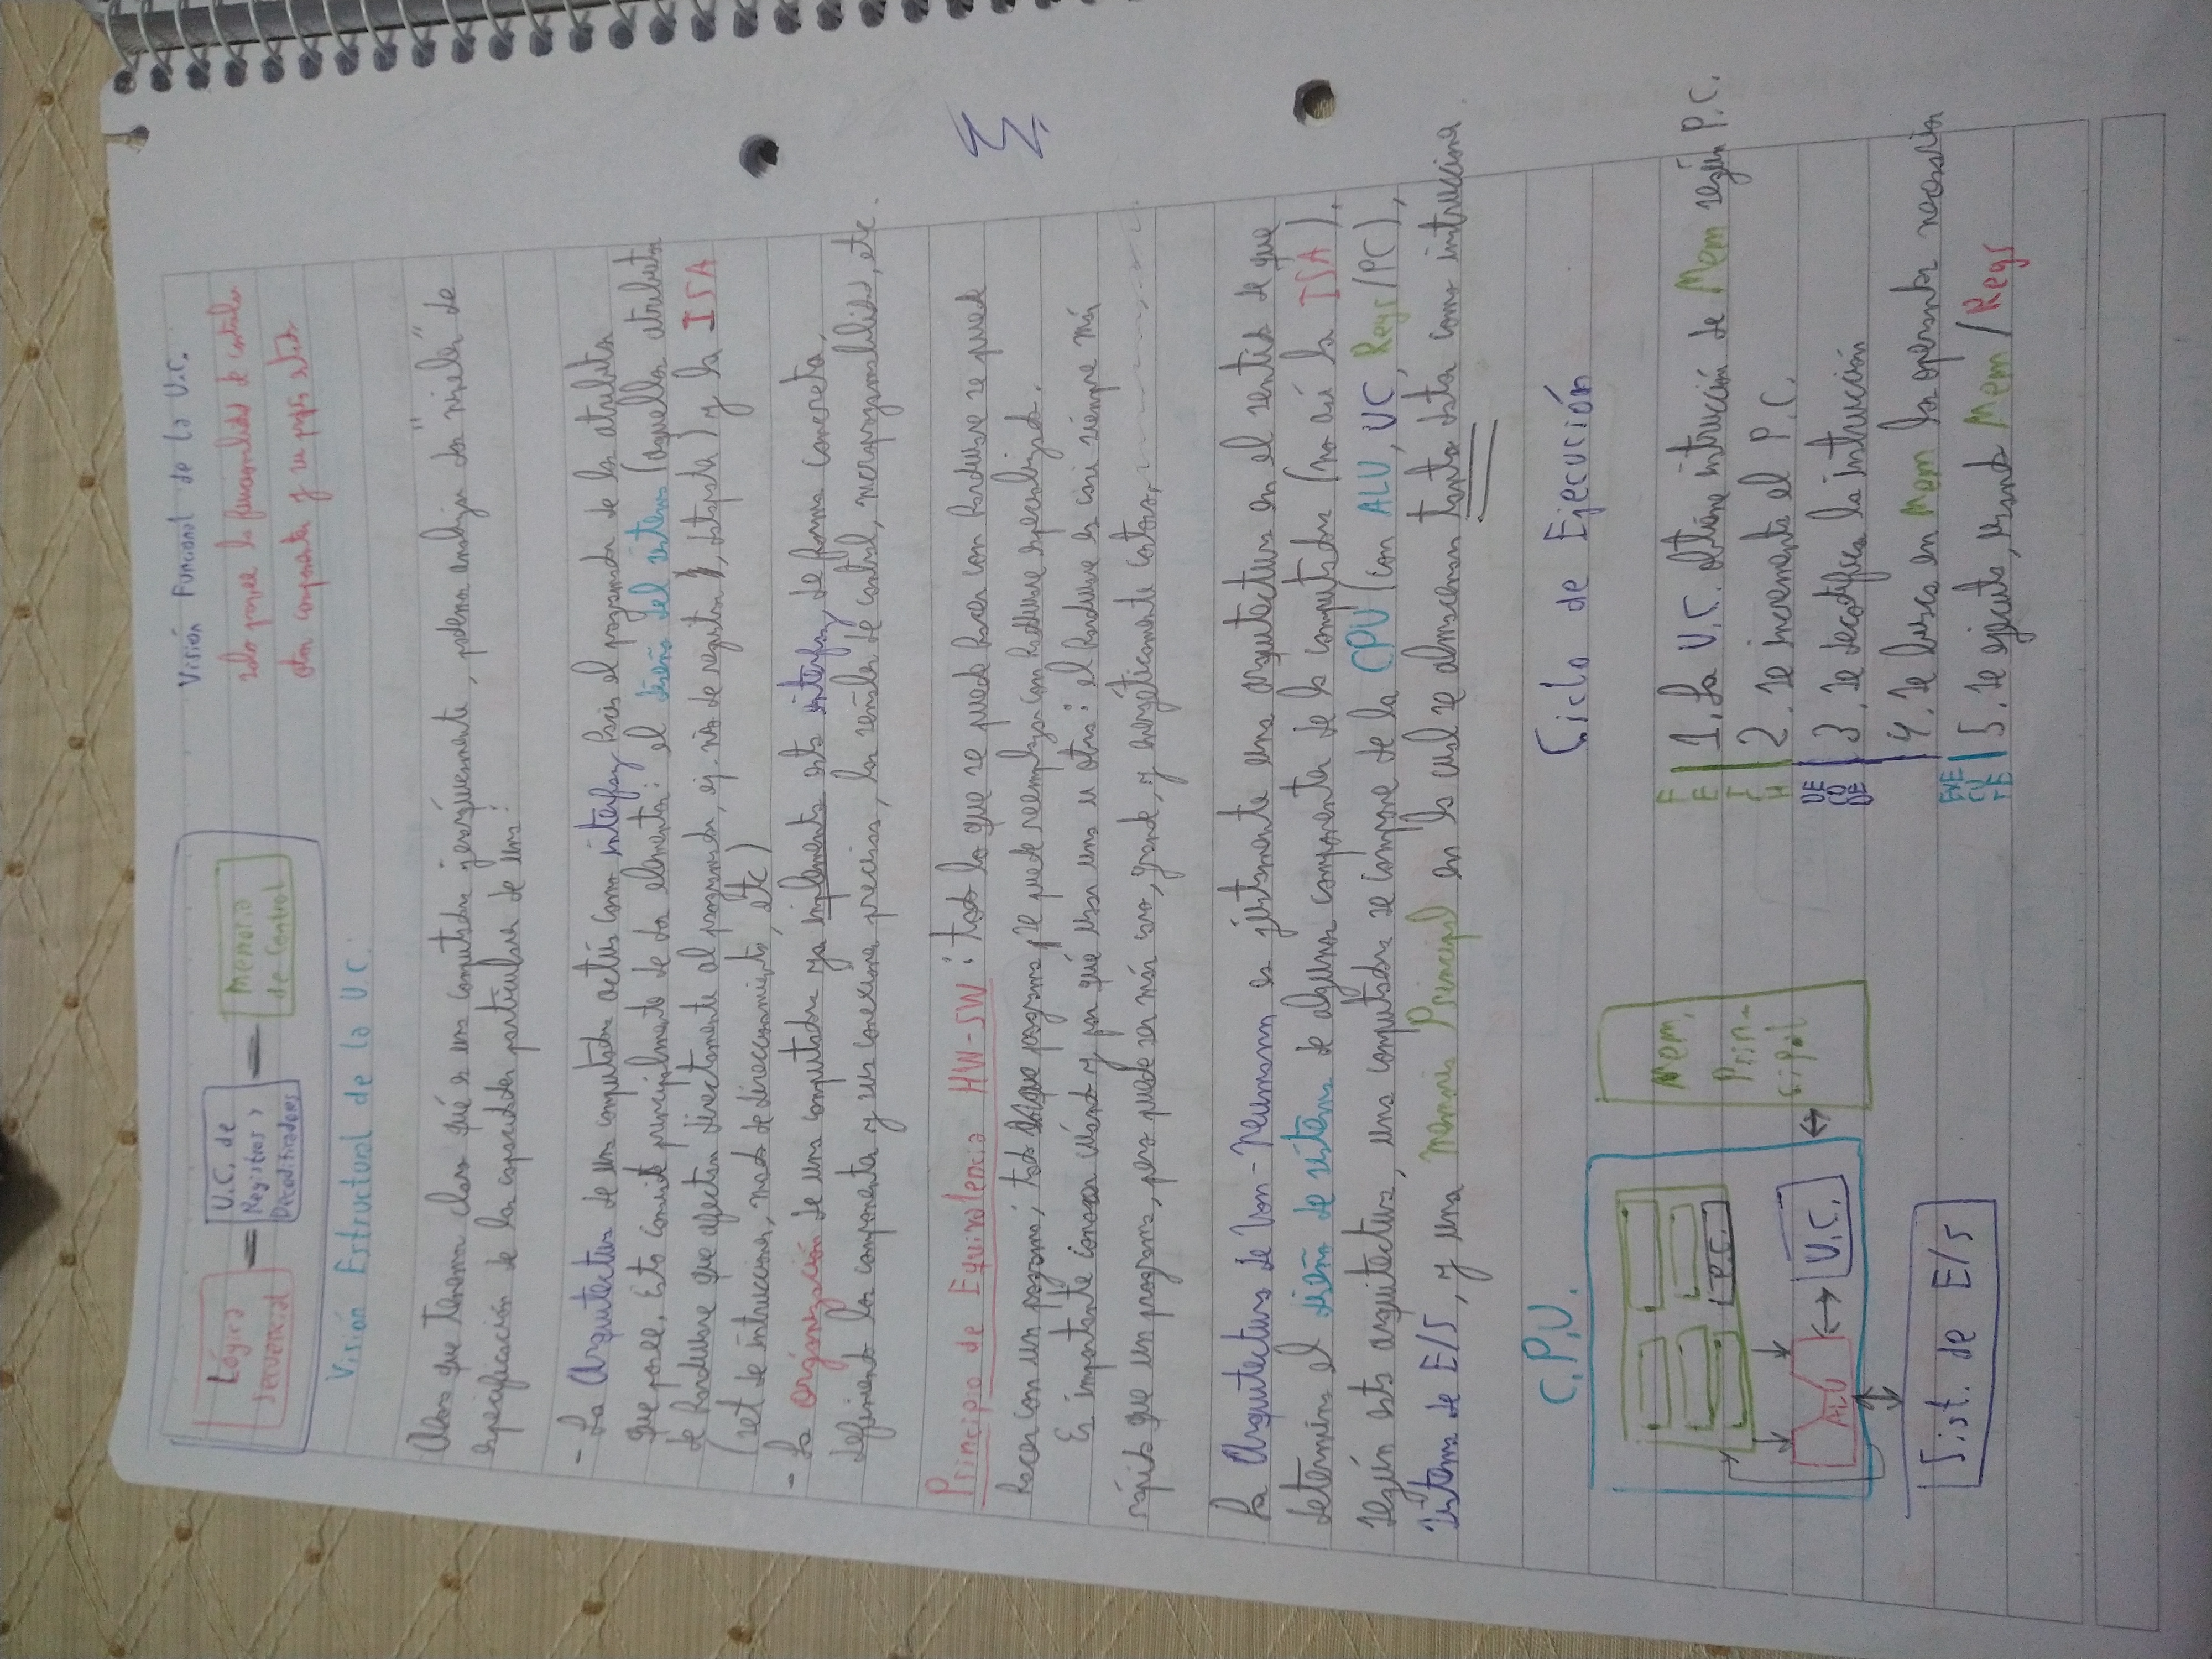 Lógica
Secuencial
U.C. de
Registros y
Decodificadores
Memoria
de Control
Visión Estructural de la U.C.
Visión Funcional de la U.C.
solo provee la funcionalidad de controlar
otros componentes y su propio estado
que tenemos claro qué es una computadora jerárquicamente, podemos analizar dos "niveles" de
especificación de las capacidades particulares de una:
- La Arquitectura de una computadora actúa como interfaz hacia el programador de los atributos
que posee. Esto consiste principalmente de dos elementos: el diseño del sistema (aquellos atributos
de hardware que afectan directamente al programador, ej. nro de registros, datapath) y la ISA
(set de intrucciones, modos de direccionamiento, etc)
- La organización de una computadora ya implementa esta interfaz de forma concreta,
definiendo los componentes y sus conexiones precisas, las señales de control, microprogramabilidad, etc.
Principio de Equivalencia HW-SW: todo lo que se puede hacer con hardware se puede
hacer con un programa; todo programa se puede reemplazar con hardware especializado.
Es importante conocer cuándo y por qué usar uno u otro: el hardware es casi siempre más
rápido que un programa, pero puede ser más caro, grande, y energéticamente costoso.
La Arquitectura de Von-Neumann es justamente una arquitectura en el sentido de que
determina el diseño de sistema de algunos componentes de la computadora (no así la ISA).
Según esta arquitectura, una computadora se compone de la CPU (con ALU, UC, Regs/PC),
Sistema de E/S, y una Memoria Principal en la cual se almacenan tanto datos como intrucciones.
C.P.U.
P.C.
ALU
U.C.
Mem.
Prin-
cipal
Sist. de E/S
Ciclo de Ejecución
FETCH
1. La U.C. obtiene intrucción de Mem según P.C.
2. Se incrementa el P.C.
DE
CO
DE
3. Se decodifica la intrucción
4. Se busca en Mem los operandos necesarios
EXE
CU
TE
5. Se ejecuta, usando Mem / Regs